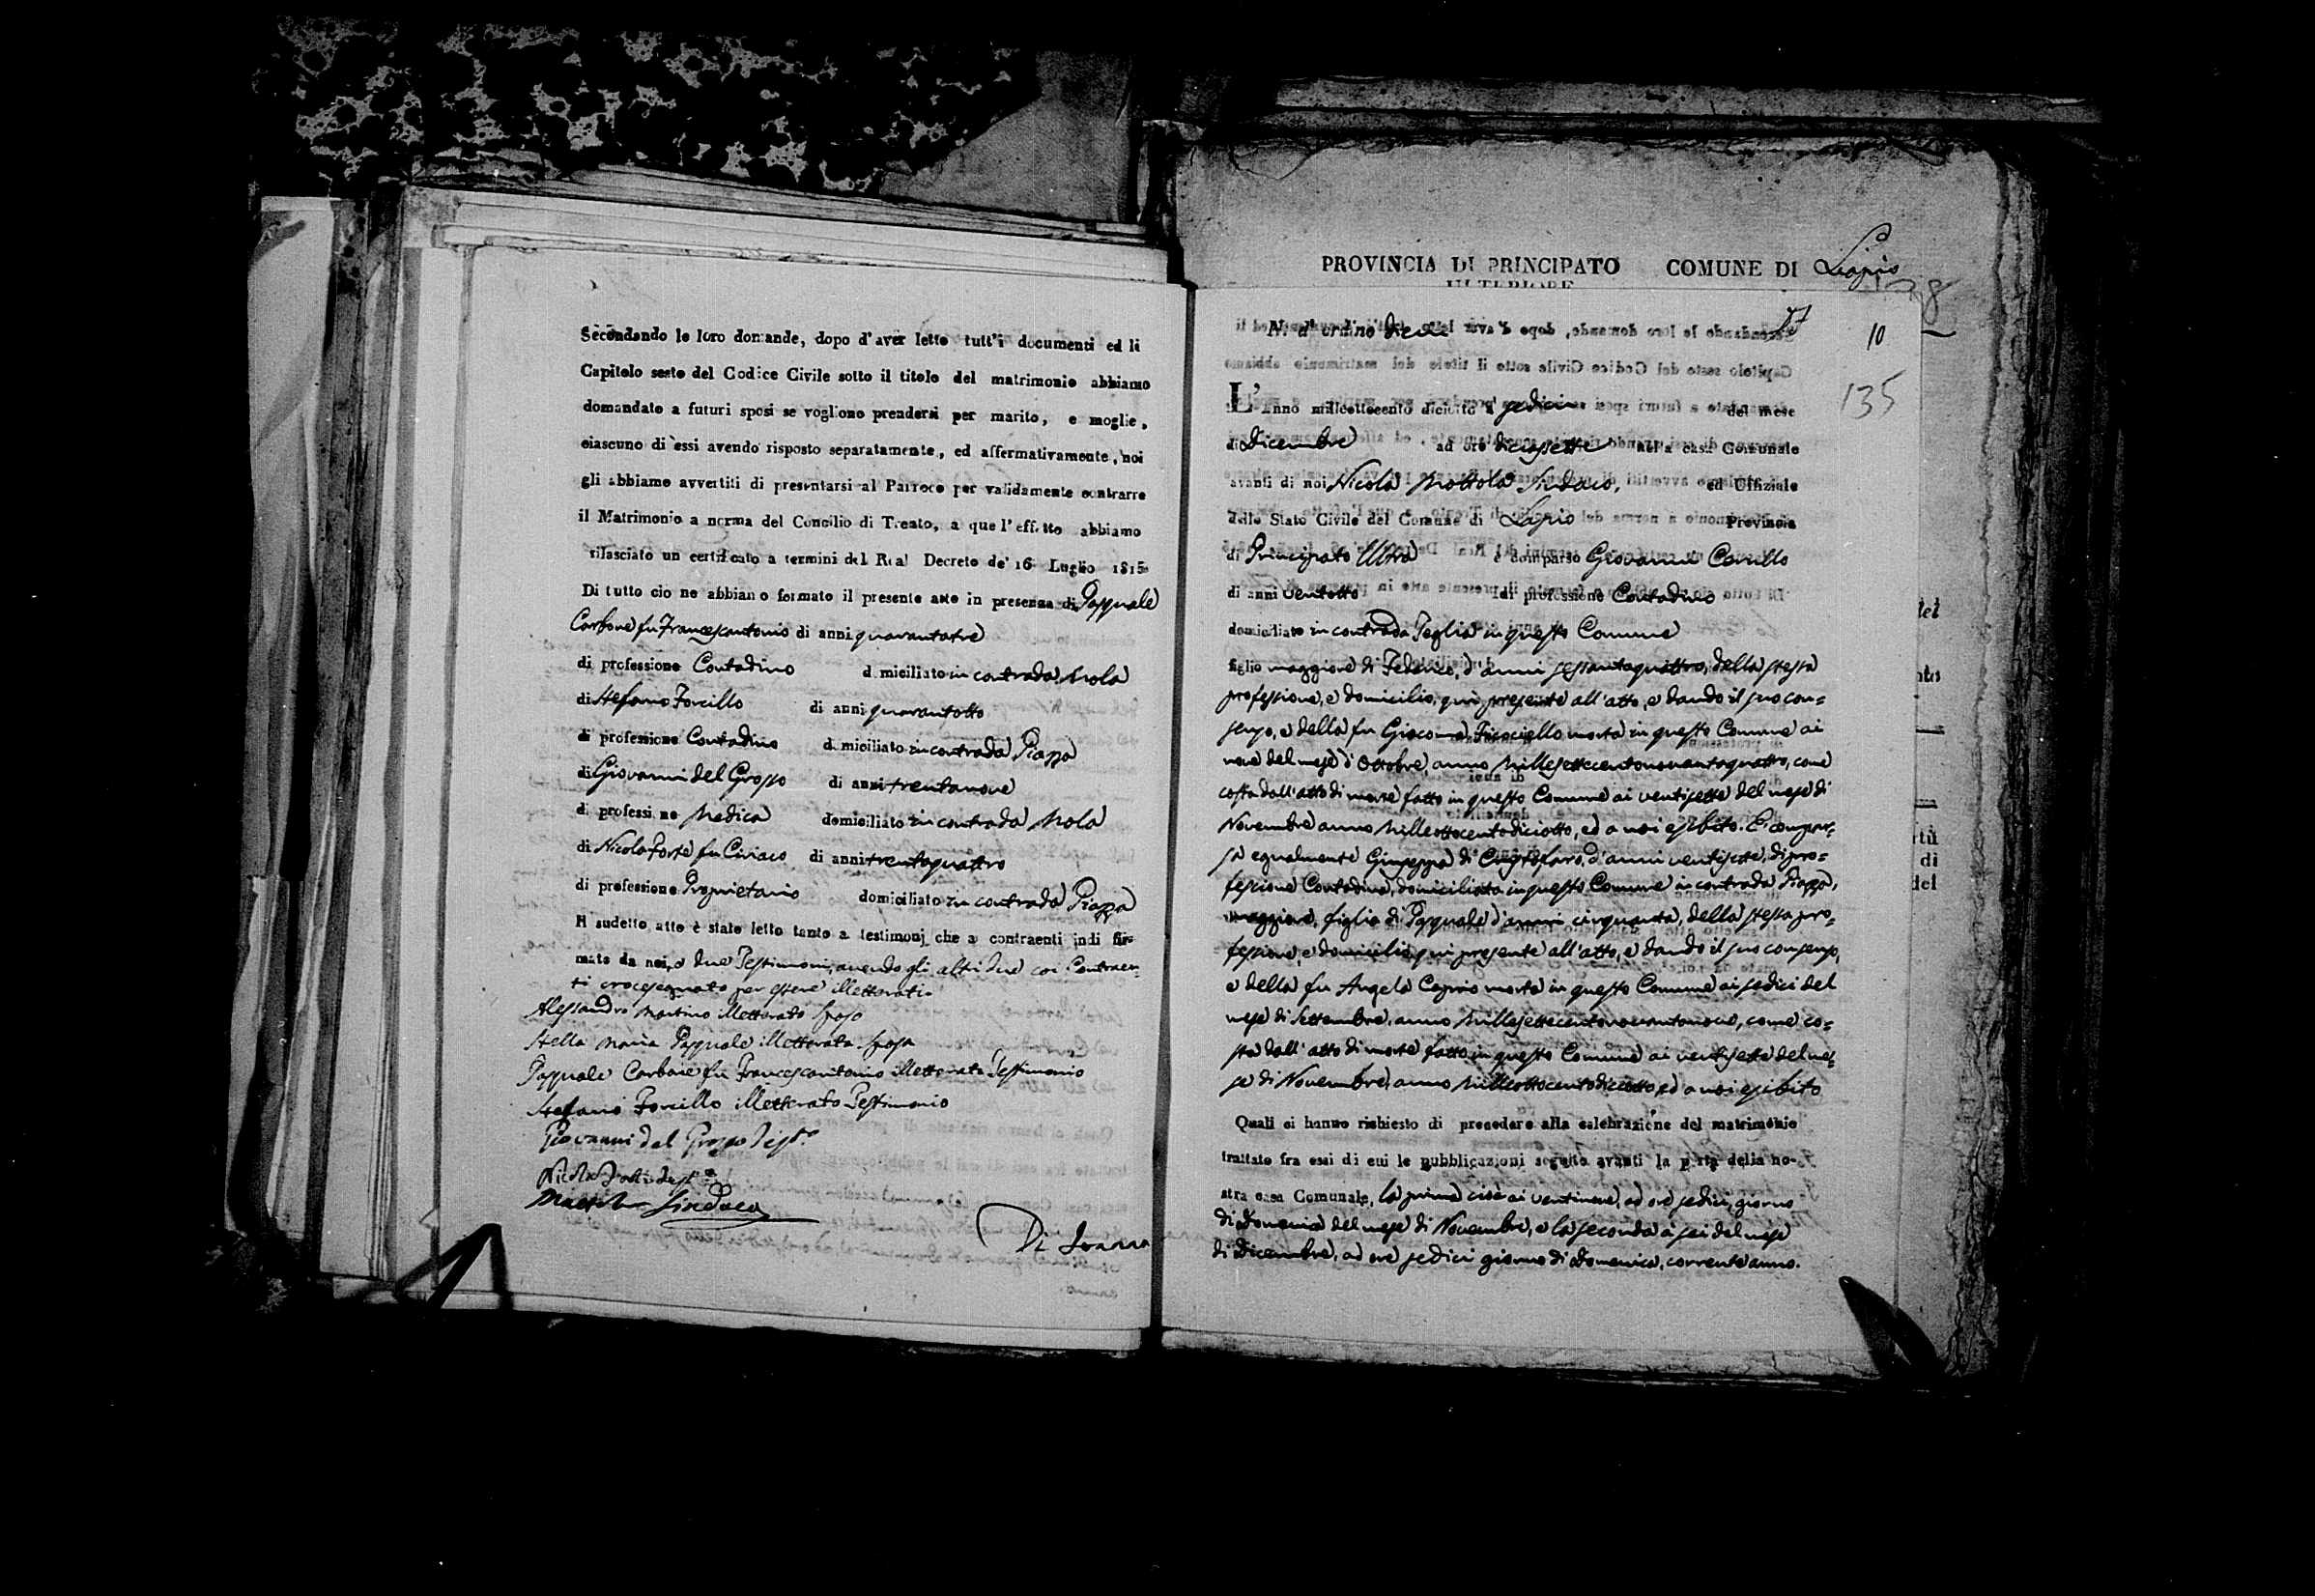 Secondando le loro domande, dopo d'aver letto tutt'i documenti ed il
Capitolo sesto del Codice Civile sotto il titolo del matrimonio abbiamo
domandato a futuri sposi se vogliono prendersi per marito, e moglie,
ciascuno di essi avendo risposto separatamente, ed affermativamente, noi
gli abbiamo avvertiti di presentarsi al Parroco per validamente contrarre
il Matrimonio a norma del Concilio di Trento, a que l'effetto abbiamo
rilasciato un certificato a termini del Real Decreto de' 16 Luglio 1815
Di tutto cio ne abbiamo formato il presente atto in presenza di Pasquale
Carbone fu Francescantonio di anni quarantatre
di professione Contadino domiciliato in contrada Mola
di Stefano Forcillo di anni quarantotto
di professione Contadino domiciliato in contrada Piazza
di Giovanni del Grosso di anni trentanove
di professione Medico domiciliato in contrada Mola
di Nicola Forte fu Ciriaco di anni trentaquattro
di professione Proprietario domiciliato in contrada Piazza
Il sudetto atto è stato letto tanto a testimonj che a contraenti indi fir-
mato da noi, e due Testimonj, avendo gli altri due coi Contraen-
ti crocesegnato per essere illetterati.
Alessandro Martino illetterato Sposo
Stella Maria Pasquale illetterata Sposa
Pasquale Carbone fu Francescantonio illetterato Testimonio
Stefano Forcillo illetterato Testimonio
Giovanni del Grosso Test.
Nicola Forte Test.
Mottola Sindaco
PROVINCIA DI PRINCIPATO COMUNE DI Lapio
ULTERIORE
N. d'ordine Dieci
10
135
L'Anno milleottocento diciotto a' sedici del mese
di Dicembre ad ore diciassette nella casa Comunale
avanti di noi Nicola Mottola Sindaco, ed Uffiziale
dello Stato Civile del Comune di Lapio Provincia
di Principato Ultra è comparso Giovanni Carullo
di anni ventotto di professione Contadino
domiciliato in contrada Teglia in questo Comune
figlio maggiore di Federico, d'anni sessantaquattro, della stessa
professione, e domicilio, qui presente all'atto, e dando il suo con=
senso, e della fu Giacoma morta in questo Comune ai
nove del mese d'Ottobre, anno Millesettecentonovantaquattro, come
costa dall'atto di morte fatto in questo Comune ai ventisette del mese di
Novembre anno Milleottocentodiciotto, ed a noi esibito. E compar=
sa egualmente Giuseppa di Cristofaro, d'anni ventisette, di pro=
fessione Contadina, domiciliata in questo Comune in contrada Piazza,
maggiore, figlia di Pasquale d'anni cinquanta, della stessa pro=
fessione, e domicilio, qui presente all'atto, e dando il suo consenso,
e della fu Angela Caprio morta in questo Comune ai sedici del
mese di Settembre, anno Millesettecentonovantanove, come co=
sta dall'atto di morte fatto in questo Comune ai ventisette del me=
se di Novembre, anno Milleottocentodiciotto, ed a noi esibito
Quali ci hanno richiesto di procedere alla celebrazione del matrimonio
trattato fra essi di cui le pubblicazioni seguite avanti la porta della no-
stra casa Comunale, la prima cioè ai ventinove, ad ore sedici, giorno
di Domenica del mese di Novembre, e la seconda a' sei del mese
di Dicembre, ad ore sedici giorno di Domenica, corrente anno.